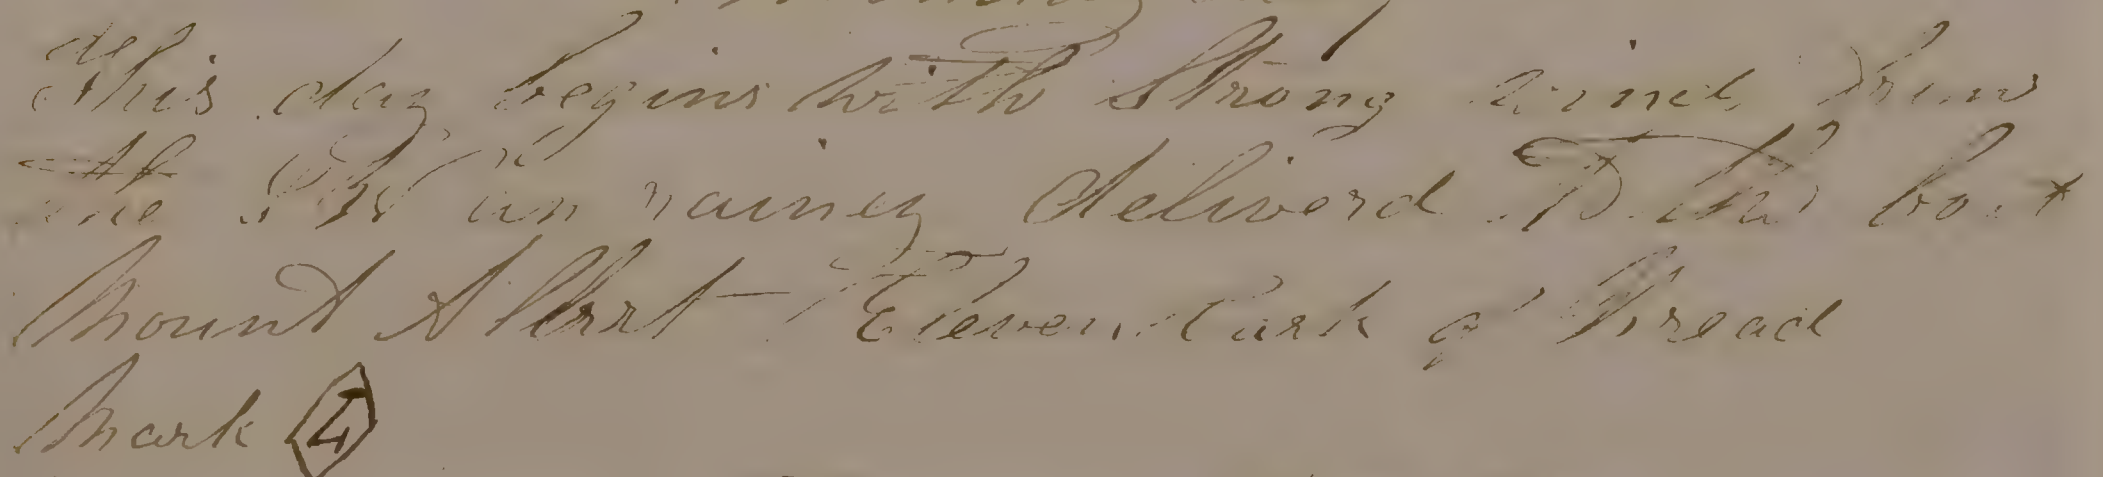 This day begins with Strong wind from
the SW an rainey deliverd boat
Mount Albert Eleven Cask of bread
Mark 4